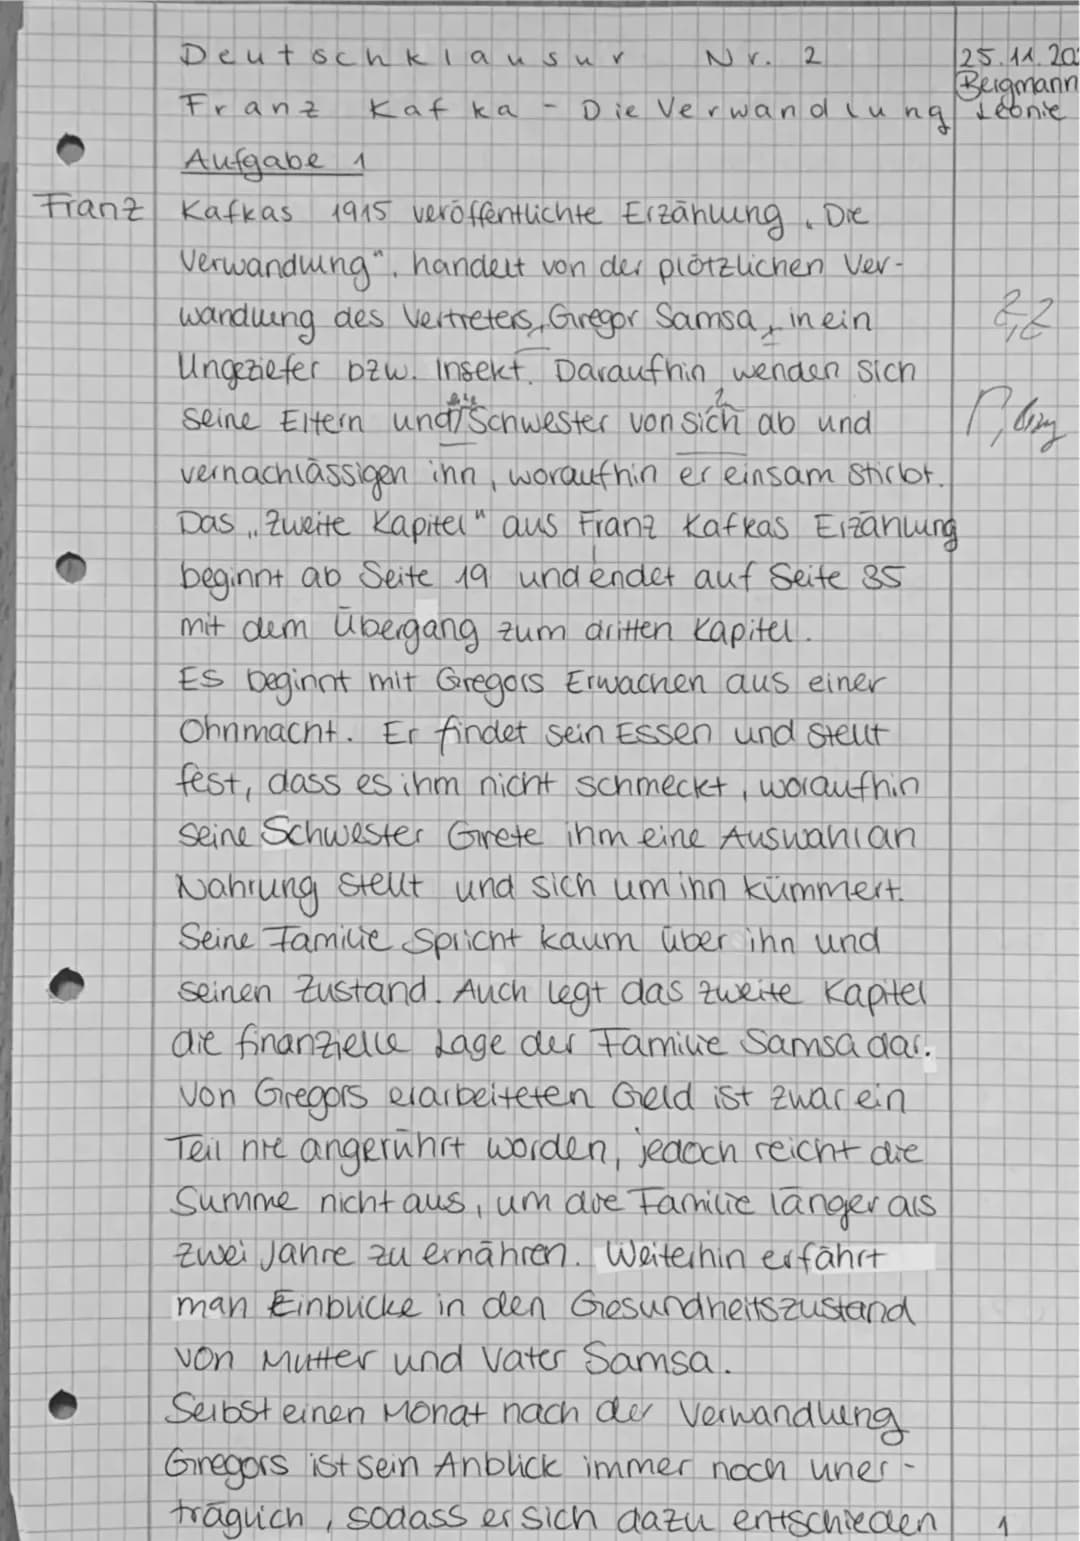 Deutschklausur Nr. 2 25.11.20
Bergmann
Franz Kafka - Die Verwandlung Leonie
Aufgabe 1
Franz Kafkas 1915 veröffentlichte Erzählung „Die
Verwandlung", handelt von der plötzlichen Ver-
wandlung des Vertreters, Gregor Samsa, in ein
Z,Z
Ungeziefer bzw. Insekt. Daraufhin wenden sich
seine Eltern und Schwester von sich ab und
vernachlässigen ihn, woraufhin er einsam stirbt.
Das „Zweite Kapitel" aus Franz Kafkas Erzählung
beginnt ab Seite 19 und endet auf Seite 35
mit dem Übergang zum dritten Kapitel.
Es beginnt mit Gregors Erwachen aus einer
Ohnmacht. Er findet sein Essen und stellt
fest, dass es ihm nicht schmeckt, woraufhin
seine Schwester Grete ihm eine Auswahl an
Nahrung stellt und sich um ihn kümmert.
Seine Familie spricht kaum über ihn und
seinen Zustand. Auch legt das zweite Kapitel
die finanzielle Lage der Familie Samsa dar.
Von Gregors erarbeiteten Geld ist zwar ein
Teil nie angerührt worden, jedoch reicht die
Summe nicht aus, um die Familie länger als
zwei Jahre zu ernähren. Weiterhin erfährt
man Einblicke in den Gesundheitszustand
von Mutter und Vater Samsa.
Selbst einen Monat nach der Verwandlung
Gregors ist sein Anblick immer noch uner-
träglich, sodass er sich dazu entschieden 1